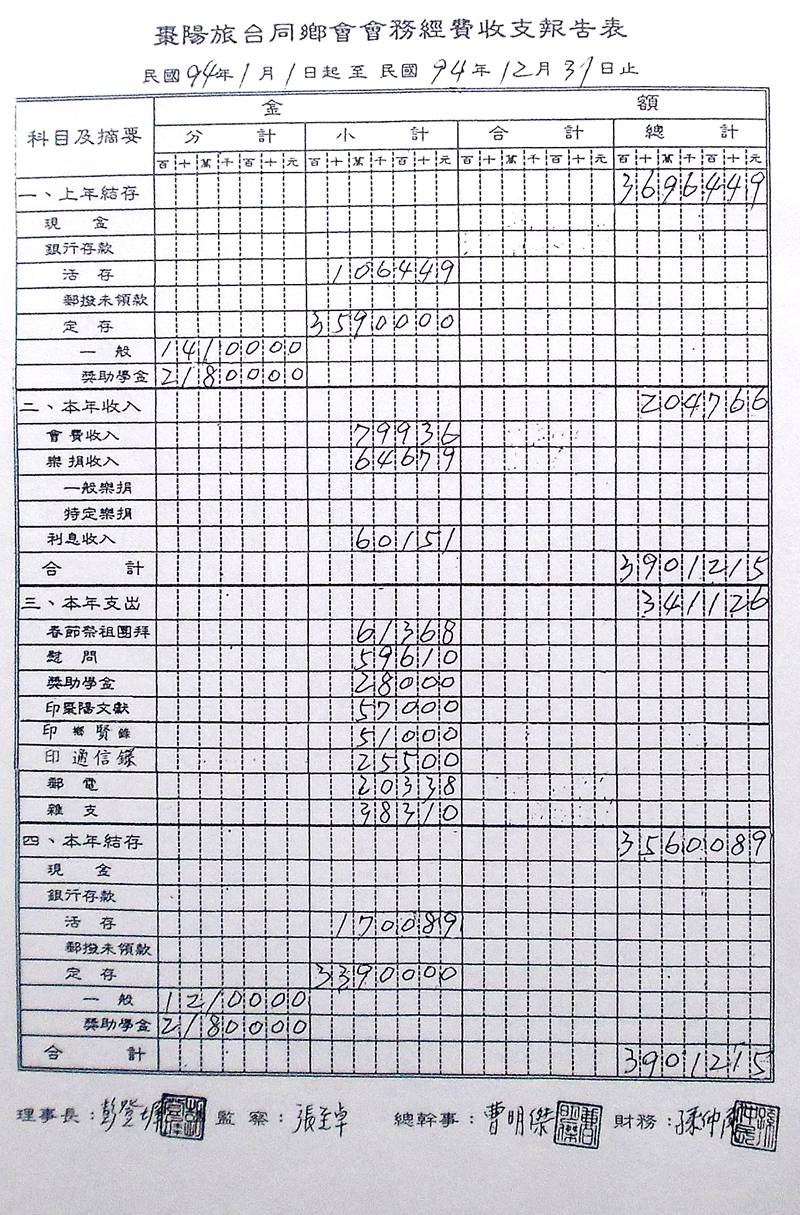 棗陽旅台同鄉會會務經費收支報告表
民國94年1月1日起至民國94年12月31日止
科目及摘要 金 額
分 計 小 計 合 計 總 計
百十萬千百十元 百十萬千百十元 百十萬千百十元 百十萬千百十元
一、上年結存 3696449
現 金
銀行存款
活 存 106449
郵撥未領款
定 存 3590000
一 般 1410000
獎助學金 2180000
二、本年收入 204766
會費收入 79936
樂捐收入 64679
一般樂捐
特定樂捐
利息收入 60151
合 計 3901215
三、本年支出 341126
春節祭祖團拜 61368
慰 問 59610
獎助學金 28000
印棗陽文獻 57000
印鄉賢錄 51000
印通信錄 25500
郵 電 20338
雜 支 38310
四、本年結存 3560089
現 金
銀行存款
活 存 170089
郵撥未領款
定 存 3390000
一 般 1210000
獎助學金 2180000
合 計 3901215
理事長：彭登墀 監察：張至卓 總幹事：曹明傑 財務：孫仲民